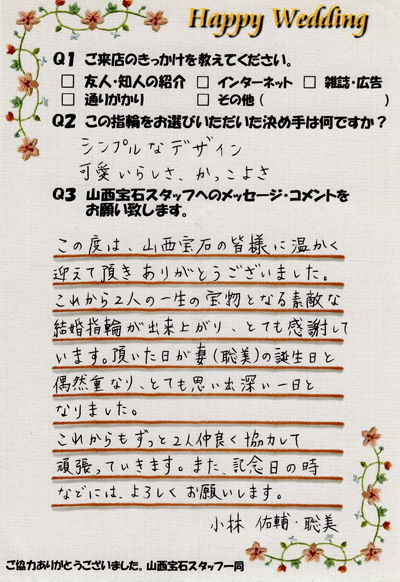 Happy Wedding
Q1 ご来店のきっかけを教えてください。
□ 友人・知人の紹介 □ インターネット □ 雑誌・広告
□ 通りがかり □ その他 ( )
Q2 この指輪をお選びいただいた決め手は何ですか?
シンプルなデザイン
可愛いらしさ、かっこよさ
Q3 山西宝石スタッフへのメッセージ・コメントを
お願い致します。
この度は、山西宝石の皆様に温かく
迎えて頂きありがとうございました。
これから2人の一生の宝物となる素敵な
結婚指輪が出来上がり、とても感謝して
います。頂いた日が妻(聡美)の誕生日と
偶然重なり、とても思い出深い一日と
なりました。
これからもずっと2人仲良く協力して
頑張っていきます。また、記念日の時
などには、よろしくお願いします。
小林 佑輔・聡美
ご協力ありがとうございました。山西宝石スタッフ一同